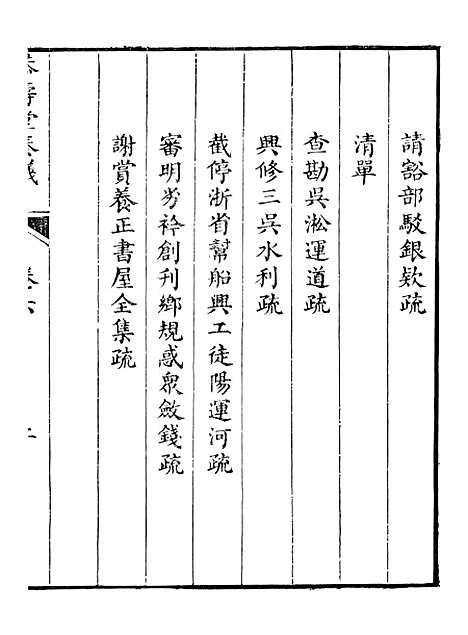 請豁部駁銀欵疏
清單
查勘吳淞運道疏
興修三吳水利疏
截停浙省幫船興工徒陽運河疏
審明劣衿創刊鄉規惑衆斂錢疏
謝賞養正書屋全集疏
卷六